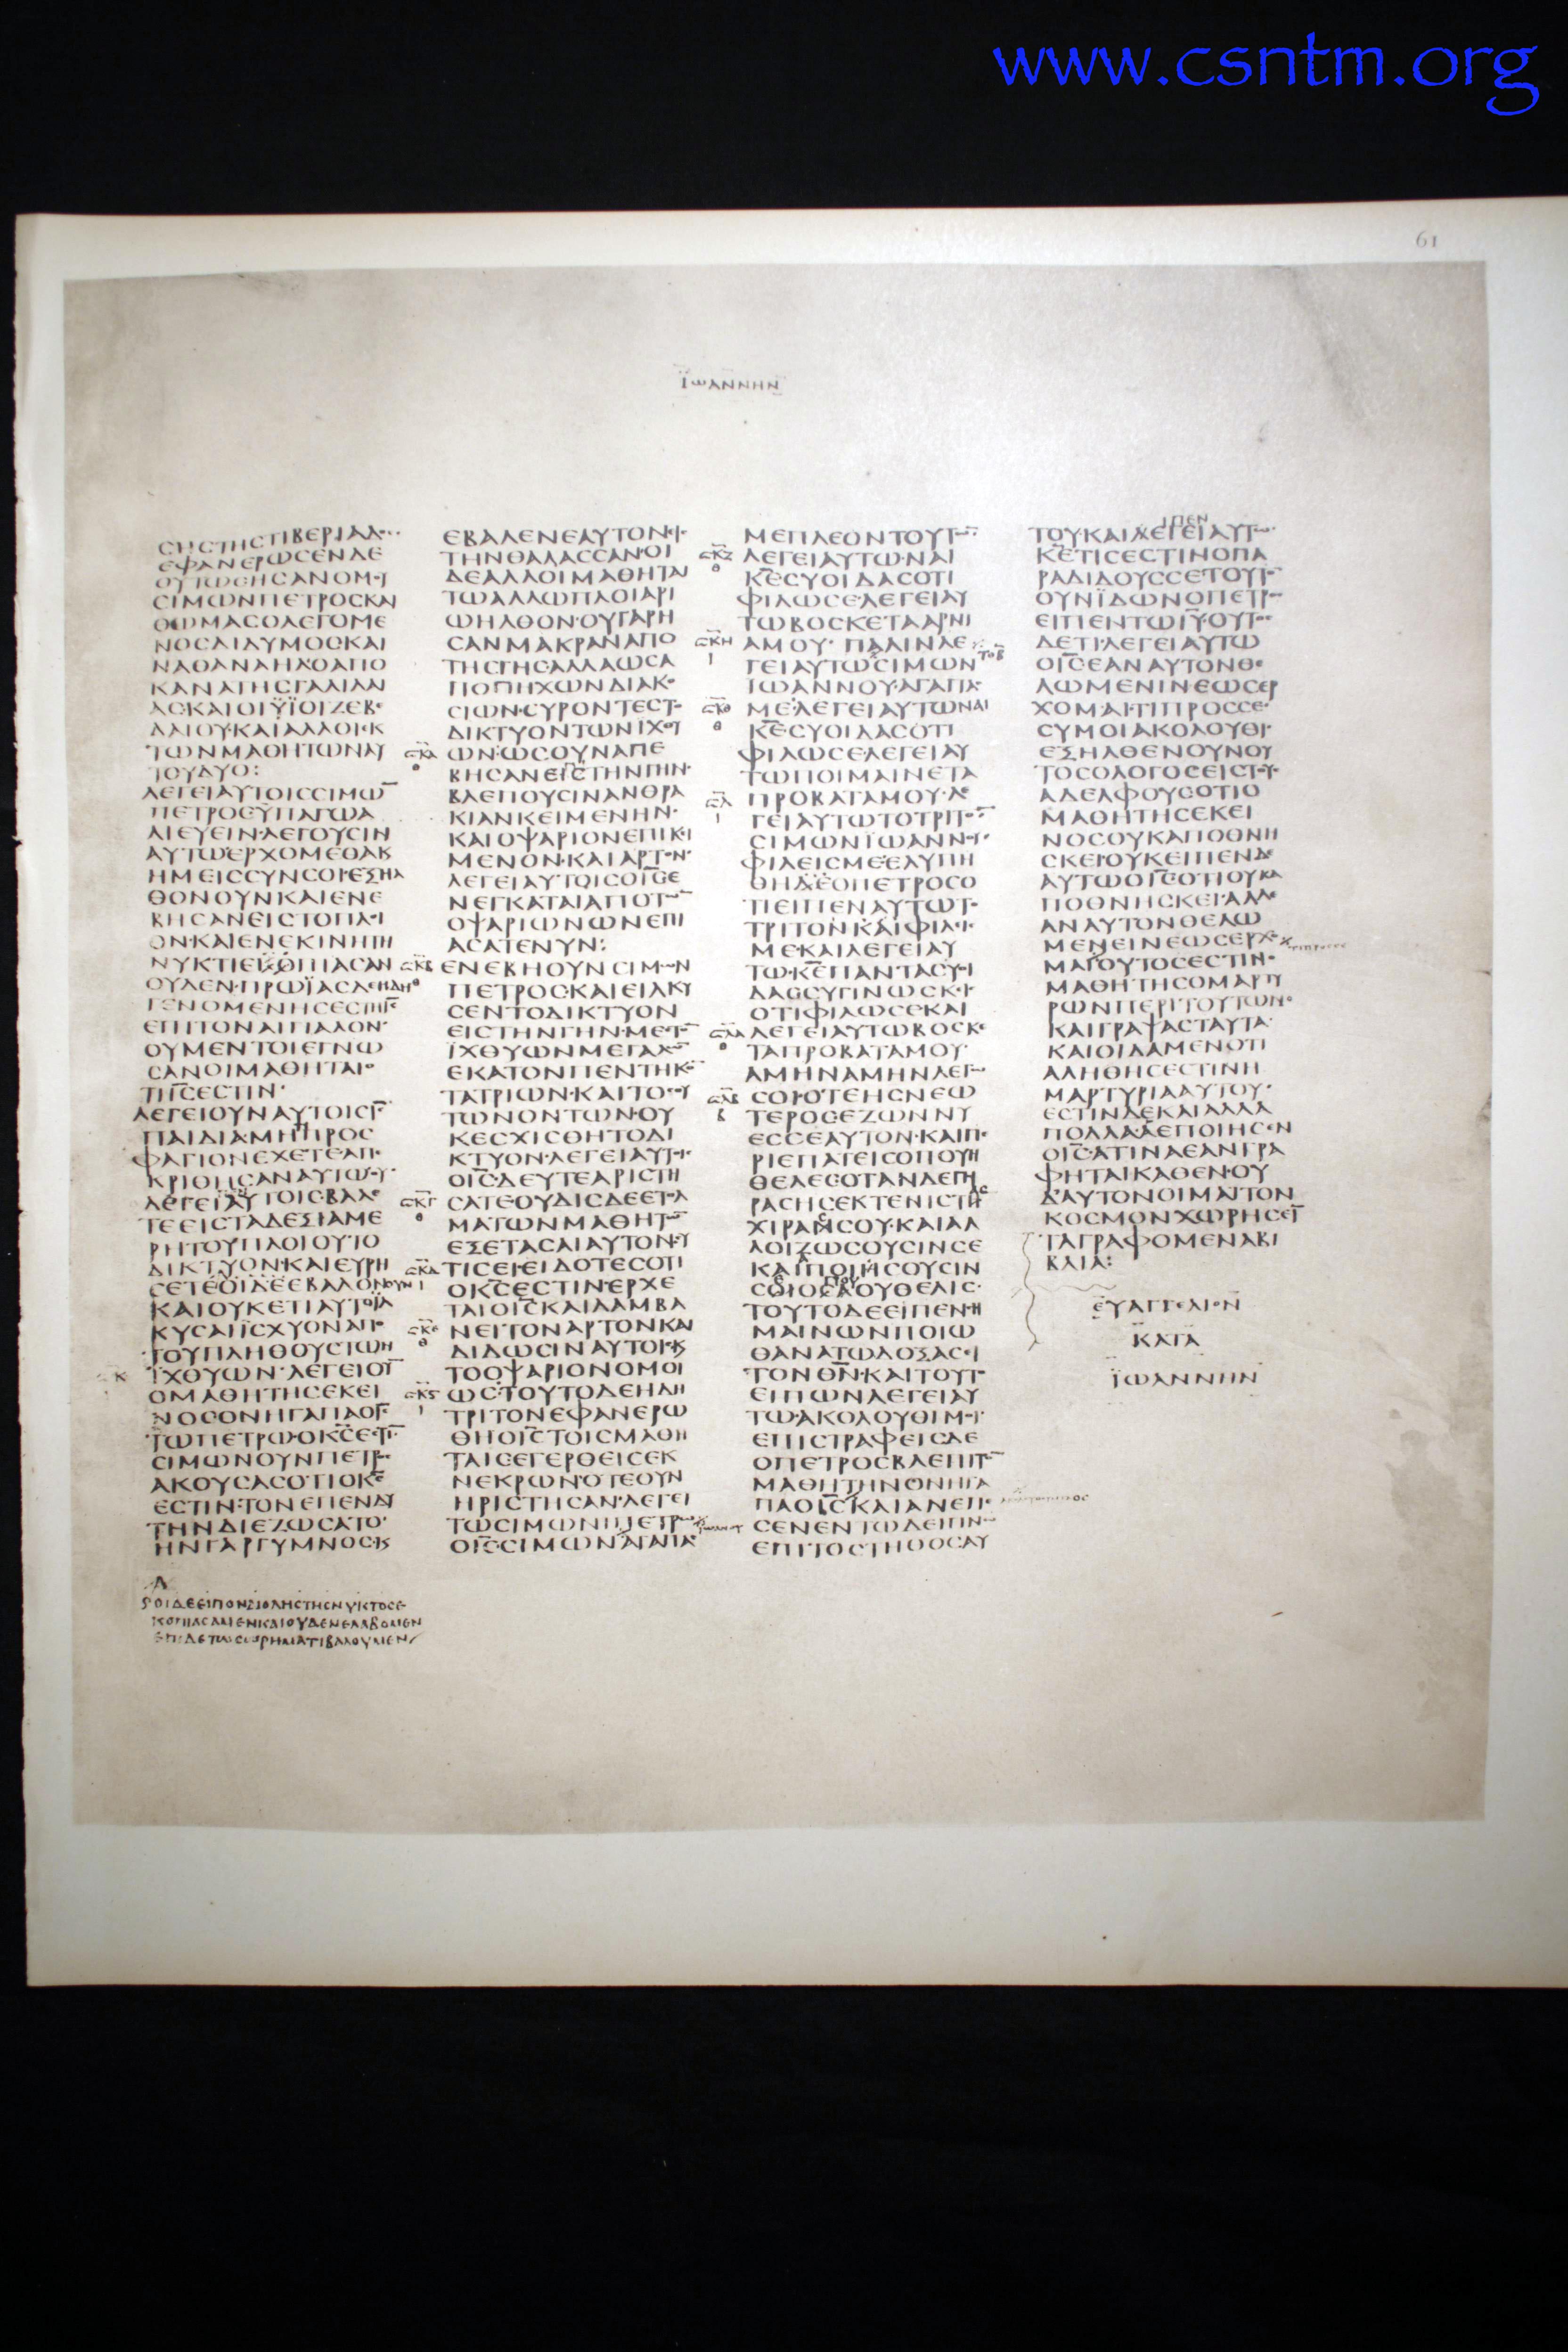 www.csntm.org
61
ΪΩΑΝΝΗΝ
CΗCΤΗCΤΙΒΕΡΙΑΔ
ΕΦΑΝΕΡΩCΕΝΔΕ
ΟΥΤΩCΗCΑΝΟΜΟΥ
CΙΜΩΝΠΕΤΡΟCΚΑΙ
ΘΩΜΑCΟΛΕΓΟΜΕ
ΝΟCΔΙΔΥΜΟCΚΑΙ
ΝΑΘΑΝΑΗΛΟΑΠΟ
ΚΑΝΑΤΗCΓΑΛΙΛΑΙ
ΑCΚΑΙΟΙΫΪΟΙΖΕΒΕ
ΔΑΙΟΥΚΑΙΑΛΛΟΙΕΚ
ΤΩΝΜΑΘΗΤΩΝΑΥ
ΤΟΥΔΥΟ:
ΛΕΓΕΙΑΥΤΟΙCCΙΜΩ̅
ΠΕΤΡΟCΫΠΑΓΩΑ
ΛΙΕΥΕΙΝ·ΛΕΓΟΥCΙΝ
ΑΥΤΩΕΡΧΟΜΕΘΑΚ
ΗΜΕΙCCΥΝCΟΙ·ΕΞΗΛ
ΘΟΝΟΥΝΚΑΙΕΝΕ
ΒΗCΑΝΕΙCΤΟΠΛΟΙ
ΟΝ·ΚΑΙΕΝΕΚΙΝΗΤΗ
ΝΥΚΤΙΕΚΟΠΙΑCΑΝ
ΟΥΔΕΝ·ΠΡΩΪΑCΔΕΗΔΗ
ΓΕΝΟΜΕΝΗCΕCΤΗΙC
ΕΠΙΤΟΝΑΙΓΙΑΛΟΝ·
ΟΥΜΕΝΤΟΙΕΓΝΩ
CΑΝΟΙΜΑΘΗΤΑΙΟ
ΤΙΙ̅C̅ΕCΤΙΝ·
ΛΕΓΕΙΟΥΝΑΥΤΟΙCΙ̅C̅
ΠΑΙΔΙΑΜΗΤΙΠΡΟC
ΦΑΓΙΟΝΕΧΕΤΕΑΠΕ
ΚΡΙΘΗCΑΝΑΥΤΩΟΥ
ΛΕΓΕΙΑΥΤΟΙCΒΑΛΕ
ΤΕΕΙCΤΑΔΕΞΙΑΜΕ
ΡΗΤΟΥΠΛΟΙΟΥΤΟ
ΔΙΚΤΥΟΝ·ΚΑΙΕΥΡΗ
CΕΤΕΟΙΔΕΕΒΑΛΟΝΟΥΝ
ΚΑΙΟΥΚΕΤΙΑΥΤΟΪΛ
ΚΥCΑΙΪCΧΥΟΝΑΠΟ
ΤΟΥΠΛΗΘΟΥCΤΩΝ
ΪΧΘΥΩΝ·ΛΕΓΕΙΟΥ̅
ΟΜΑΘΗΤΗCΕΚΕΙ
ΝΟCΟΝΗΓΑΠΑΟΙ̅C̅
ΤΩΠΕΤΡΩ·ΟΚ̅C̅ΕCΤΙ̅
CΙΜΩΝΟΥΝΠΕΤΡΟC
ΑΚΟΥCΑCΟΤΙΟΚ̅C̅
ΕCΤΙΝ·ΤΟΝΕΠΕΝΔΥ
ΤΗΝΔΙΕΖΩCΑΤΟ·
ΗΝΓΑΡΓΥΜΝΟC·Κ
ΟΙΔΕΕΙΠΟΝΔΙΟΛΗCΤΗCΝΥΚΤΟCΕ
ΚΟΠΙΑCΑΜΕΝΚΑΙΟΥΔΕΝΕΛΑΒΟΜΕΝ
ΕΠΙΔΕΤΩCΩΡΗΜΑΤΙΒΑΛΟΥΜΕΝ
ΕΒΑΛΕΝΕΑΥΤΟΝΕΙC
ΤΗΝΘΑΛΑCCΑΝ·ΟΙ
ΔΕΑΛΛΟΙΜΑΘΗΤΑΙ
ΤΩΑΛΛΩΠΛΟΙΑΡΙ
ΩΗΛΘΟΝ·ΟΥΓΑΡΗ
CΑΝΜΑΚΡΑΝΑΠΟ
ΤΗCΓΗCΑΛΛΑΩCΑ
ΠΟΠΗΧΩΝΔΙΑΚΟ
CΙΩΝ·CΥΡΟΝΤΕCΤΟ
ΔΙΚΤΥΟΝΤΩΝΙΧΘΥ
ΩΝ·ΩCΟΥΝΑΠΕ
ΒΗCΑΝΕΙCΤΗΝΓΗΝ·
ΒΛΕΠΟΥCΙΝΑΝΘΡΑ
ΚΙΑΝΚΕΙΜΕΝΗΝ·
ΚΑΙΟΨΑΡΙΟΝΕΠΙΚΕΙ
ΜΕΝΟΝ·ΚΑΙΑΡΤΟΝ·
ΛΕΓΕΙΑΥΤΟΙCΟΙ̅C̅Ε
ΝΕΓΚΑΤΑΙΑΠΟΤΩ̅
ΟΨΑΡΙΩΝΩΝΕΠΙ
ΑCΑΤΕΝΥΝ:
ΕΝΕΒΗΟΥΝCΙΜΩΝ
ΠΕΤΡΟC·ΚΑΙΕΙΛΚΥ
CΕΝΤΟΔΙΚΤΥΟΝ
ΕΙCΤΗΝΓΗΝ·ΜΕCΤΟ̅
ΪΧΘΥΩΝΜΕΓΑΛΩ̅
ΕΚΑΤΟΝΠΕΝΤΗΚΟ̅
ΤΑΤΡΙΩΝ·ΚΑΙΤΟCΟΥ
ΤΩΝΟΝΤΩΝ·ΟΥ
ΚΕCΧΙCΘΗΤΟΔΙ
ΚΤΥΟΝ·ΛΕΓΕΙΑΥΤΟΙC
ΟΙ̅C̅·ΔΕΥΤΕΑΡΙCΤΗ
CΑΤΕ·ΟΥΔΙCΔΕΕΤΟΛ
ΜΑΤΩΝΜΑΘΗΤΩ̅
ΕΞΕΤΑCΑΙΑΥΤΟΝCΥ
ΤΙCΕΙ·ΕΙΔΟΤΕCΟΤΙ
ΟΚ̅C̅ΕCΤΙΝ·ΕΡΧΕ
ΤΑΙΟΙ̅C̅ΚΑΙΛΑΜΒΑ
ΝΕΙΤΟΝΑΡΤΟΝΚΑΙ
ΔΙΔΩCΙΝΑΥΤΟΙC·Κ
ΤΟΟΨΑΡΙΟΝΟΜΟΙ
ΩC·ΤΟΥΤΟΔΕΗΔΗ
ΤΡΙΤΟΝΕΦΑΝΕΡΩ
ΘΗΟΙ̅C̅ΤΟΙCΜΑΘΗ
ΤΑΙCΕΓΕΡΘΕΙCΕΚ
ΝΕΚΡΩΝ·ΟΤΕΟΥΝ
ΗΡΙCΤΗCΑΝ·ΛΕΓΕΙ
ΤΩCΙΜΩΝΙΠΕΤΡΩ
ΟΙ̅C̅·CΙΜΩΝΑΓΑΠΑC
ΜΕΠΛΕΟΝΤΟΥΤΩ̅:
ΛΕΓΕΙΑΥΤΩ·ΝΑΙ
Κ̅Ε̅CΥΟΙΔΑCΟΤΙ
ΦΙΛΩCΕ·ΛΕΓΕΙΑΥ
ΤΩΒΟCΚΕΤΑΑΡΝΙ
ΑΜΟΥ· ΠΑΛΙΝΛΕ
ΓΕΙΑΥΤΩCΙΜΩΝ
ΪΩΑΝΝΟΥ·ΑΓΑΠΑC
ΜΕ·ΛΕΓΕΙΑΥΤΩΝΑΙ
Κ̅Ε̅CΥΟΙΔΑCΟΤΙ
ΦΙΛΩCΕ·ΛΕΓΕΙΑΥ
ΤΩΠΟΙΜΑΙΝΕΤΑ
ΠΡΟΒΑΤΑΜΟΥ·ΛΕ
ΓΕΙΑΥΤΩΤΟΤΡΙΤΟ̅
CΙΜΩΝΪΩΑΝΝΟΥ·
ΦΙΛΕΙCΜΕ·ΕΛΥΠΗ
ΘΗΔΕΟΠΕΤΡΟCΟ
ΤΙΕΙΠΕΝΑΥΤΩΤΟ
ΤΡΙΤΟΝΚΑΙΦΙΛΕΙC
ΜΕ·ΚΑΙΛΕΓΕΙΑΥ
ΤΩ·Κ̅Ε̅ΠΑΝΤΑCΥΟΙ
ΔΑC·CΥΓΙΝΩCΚΕΙC
ΟΤΙΦΙΛΩCΕΚΑΙ
ΛΕΓΕΙΑΥΤΩΒΟCΚΕ
ΤΑΠΡΟΒΑΤΑΜΟΥ·
ΑΜΗΝΑΜΗΝΛΕΓΩ
CΟΙ·ΟΤΕΗCΝΕΩ
ΤΕΡΟCΕΖΩΝΝΥ
ΕCCΕΑΥΤΟΝ·ΚΑΙΠΕ
ΡΙΕΠΑΤΕΙCΟΠΟΥΗ
ΘΕΛΕCΟΤΑΝΔΕΓΗ
ΡΑCΗCΕΚΤΕΝΙCΤΗ
ΧΙΡΑCΟΥ·ΚΑΙΑΛ
ΛΟΙΖΩCΟΥCΙΝCΕ
ΚΑΙΠΟΙΗCΟΥCΙΝ
CΟΙΟCΑΟΥΘΕΛΙC·
ΤΟΥΤΟΔΕΕΙΠΕΝCΗ
ΜΑΙΝΩΝΠΟΙΩ
ΘΑΝΑΤΩΔΟΞΑCΕΙ
ΤΟΝΘ̅Ν̅·ΚΑΙΤΟΥΤΟ
ΕΙΠΩΝΛΕΓΕΙΑΥ
ΤΩ·ΑΚΟΛΟΥΘΙΜΟΙ·
ΕΠΙCΤΡΑΦΕΙCΔΕ
ΟΠΕΤΡΟCΒΛΕΠΙΤΟ̅
ΜΑΘΗΤΗΝΟΝΗΓΑ
ΠΑΟΙ̅C̅ΚΑΙΑΝΕΠΕ
CΕΝΕΝΤΩΔΕΙΠΝΩ
ΕΠΙΤΟCΤΗΘΟCΑΥ
ΤΟΥΚΑΙΛΕΓΕΙΑΥΤΩ
Κ̅Ε̅ΤΙCΕCΤΙΝΟΠΑ
ΡΑΔΙΔΟΥCCΕΤΟΥΤΟ̅
ΟΥΝΪΔΩΝΟΠΕΤΡΟC
ΕΙΠΕΝΤΩΙ̅Υ̅·ΟΥΤΟC
ΔΕΤΙ·ΛΕΓΕΙΑΥΤΩ
ΟΙ̅C̅ΕΑΝΑΥΤΟΝΘΕ
ΛΩΜΕΝΙΝΕΩCΕΡ
ΧΟΜΑΙ·ΤΙΠΡΟCCΕ·
CΥΜΟΙΑΚΟΛΟΥΘΙ·
ΕΞΗΛΘΕΝΟΥΝΟΥ
ΤΟCΟΛΟΓΟCΕΙCΤΟΥC
ΑΔΕΛΦΟΥCΟΤΙΟ
ΜΑΘΗΤΗCΕΚΕΙ
ΝΟCΟΥΚΑΠΟΘΝΗ
CΚΕΙ·ΟΥΚΕΙΠΕΝΔΕ
ΑΥΤΩΟΙ̅C̅ΟΤΙΟΥΚΑ
ΠΟΘΝΗCΚΕΙ·ΑΛΛΕ
ΑΝΑΥΤΟΝΘΕΛΩ
ΜΕΝΕΙΝΕΩCΕΡΧΟ
ΜΑΙ·ΟΥΤΟCΕCΤΙΝΟ
ΜΑΘΗΤΗCΟΜΑΡΤΥ
ΡΩΝΠΕΡΙΤΟΥΤΩΝΟ
ΚΑΙΓΡΑΨΑCΤΑΥΤΑ·
ΚΑΙΟΙΔΑΜΕΝΟΤΙ
ΑΛΗΘΗCΕCΤΙΝΗ
ΜΑΡΤΥΡΙΑΑΥΤΟΥ·
ΕCΤΙΝΔΕΚΑΙΑΛΛΑ
ΠΟΛΛΑΑΕΠΟΙΗCΕΝ
ΟΙ̅C̅·ΑΤΙΝΑΕΑΝΓΡΑ
ΦΗΤΑΙΚΑΘΕΝ·ΟΥ
ΔΑΥΤΟΝΟΙΜΑΙΤΟΝ
ΚΟCΜΟΝΧΩΡΗCΕΙ̅
ΤΑΓΡΑΦΟΜΕΝΑΒΙ
ΒΛΙΑ:
ΕΥΑΓΓΕΛΙΟΝ
ΚΑΤΑ
ΪΩΑΝΝΗΝ